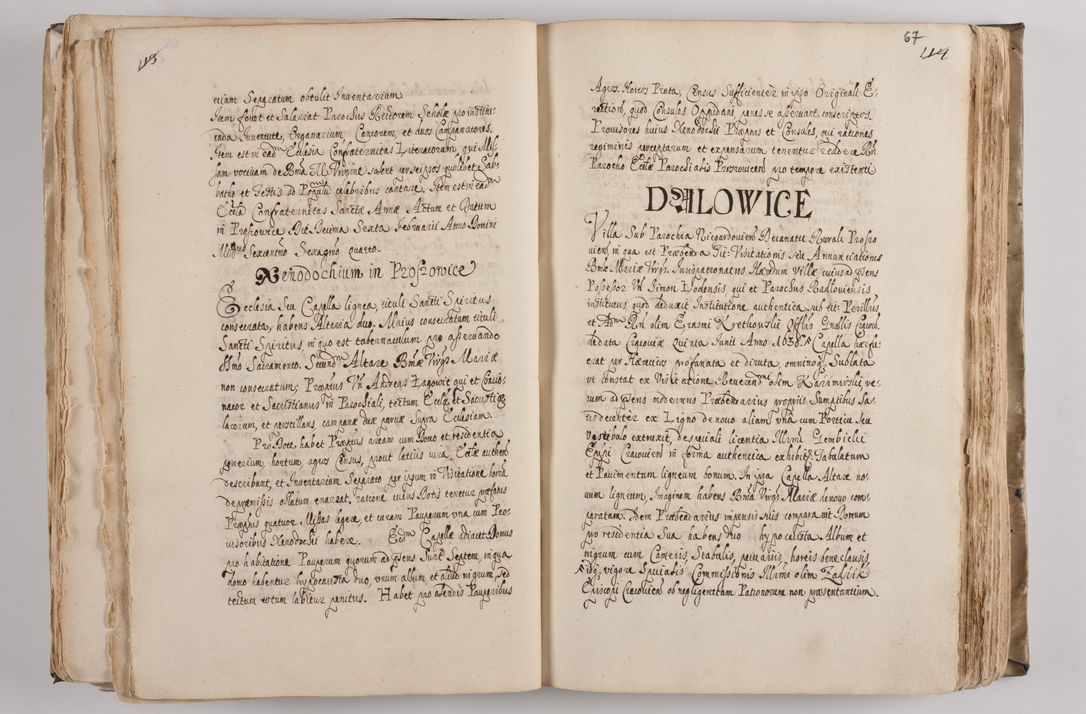 113
etiam Separatum obtulit Inventarium
Item fovet et Salariat Parochus Rectorem Scholæ pro institu-
enda Iuventute, Organarium Cantorem, et duos Campanatores.
Item est in eadm Ecclesia Confraternitas Literatorum, qui Mis-
sam votivam de Bma M. Virgine solent per seipsos quolibet Sab-
batho et Festis ad Populu celebribus cantare. Item est in eadm
Ecclia Confraternitas Sanctæ Annæ Actum et Datum
in Proszowice Die Decima Sexta Februarii Anno Domini
Millmo Sexcentmo Sexagmo quarto.
Xenodochium in Proszowice
Ecclesia Seu Capella lignea, tituli Sancti Spiritus
consecrata, habens Altaria duo. Maius consecratum tituli
Sancti Spiritus, in quo est tabernaculum pro asservando
Ssmo Sacramento. Secundm Altare Bmæ Virgs Mariæ
non consecratum; Præptus Vn Andreas Łagowic qui et Concio-
nator et Sacristianus in Parochiali, tectum Ecclæ et Sacristiæ
lacerum, et pervetllans, campanæ duæ parvæ Supra Ecclesiam.
Pro Dote habet Præptus aream cum Domo et residentia
pomerium, hortum, agros Census, prout latius iura Ecclæ authen
describunt, et Inventarium Separato per ipsum in Visitatione
de præmissis oblatum enarrat, ratione cuius Dotis tenetur præfatus
Præptus quatuor Missas legere, et curam Pauperum una cum Pro-
visoribus Xenodochii habere. Eidm Capellæ adiacet Domus
pro habitatione Pauperum quorum ad præsens Sunt Septem, in qua
domo habentur hypocausta duo, unum album et aliud nigrum, Sed
tectum totum labitur penitus. Habet pro alendis Pauperibus
67
114
Agros Hortos Prata, Census Sufficienter in ipso Originali E-
rectionis, quod Consules Oppidani penes se asservant conscriptos.
Provisores huius Xenodochii Præptus et Consules, qui rationes
regiminis perceptarum et expensarum tenentur reddere Rn
Parocho Ecclæ Parochialis Proszovicen pro tempore existenti
DALOWICE
Villa Sub Parochia Niegardovien Decanatu Rurali Proszo
vien in qua est Præbenda Tit: Visitationis Seu Annunciationis
Bmæ Mariæ Virgs. Iurispatronatus Hærdum villæ cuius ad præsens
Possessor Vn Simon Lodensis, qui et Parochus Radloviensis
institutus quod deduxit Institutione authentica sub tit: Perillris
et Adm Rn olim Erasmi Kretkowski Offlis Gnalis Cracov.
de data Cracoviæ Quinta Iunii Anno 1638. Capella hæc fu-
erat per Hæreticos profanata et diruta, omninoq3 Sublata
ut constat ex Visitatione Reverendmi olim Kazimirski ve-
rum ad præsens modernus Præbendarius propriis Sumptibus Sa-
tis decenter ex Ligno de novo aliam una cum Porticu Seu
vestibulo extruxit, de speciali licentia Illrmi Gembicki
Eppi Cracovien in forma authentica exhibita. Tabulatum
et Pavimentum ligneum bonum. In ipsa Capella Altare no-
vum ligneum Imaginem habens Bmæ Virgs Mariæ de novo com-
paratam. Idem Præbendarius impensis Suis comparavit Domum
pro residentia Sua habens duo hypocausta Album et
nigrum cum Cameris Stabulis, pecuariis, horreis bene clausis
ibiq3 vigore Specialis Commissionis Illrmi olim Zadzik
Episcopi Cracovien ob negligentiam Patronorum non præsentantium.